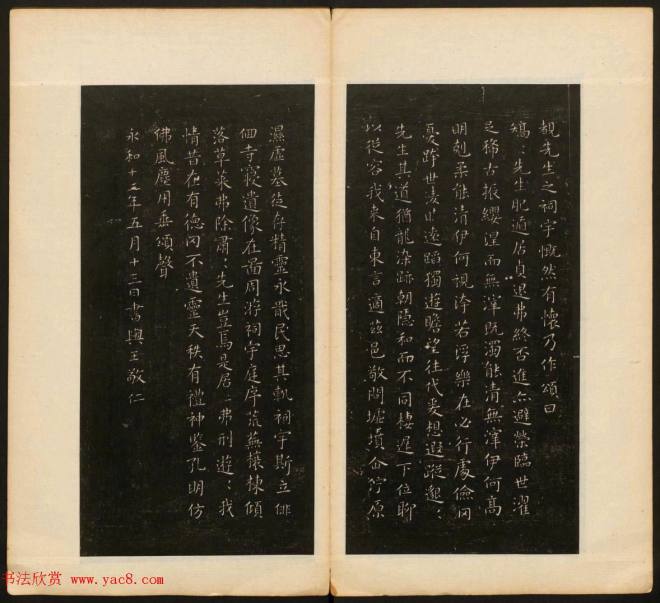 覩先生之祠宇慨然有懷乃作頌曰
矯〻先生肥遁居貞退弗終否進亦避榮臨世濯
足稀古振纓涅而無滓既濁能清無滓伊何高
明剋柔能清伊何視洿若浮樂在必行處儉罔
憂跨世凌時遠蹈獨遊瞻望往代爰想遐蹤邈〻
先生其道猶龍染跡朝隱和而不同棲遲下位聊
以從容我来自東言適茲邑敬問墟墳企佇原
濕虛墓徒存精靈永戢民思其軌祠宇斯立俳
佪寺寢遺像在啚周游祠宇庭序荒蕪榱棟傾
落草萊弗除肅〻先生豈焉是居〻弗刑遊〻我
情昔在有德罔不遺靈天秩有禮神鉴孔明仿
佛風塵用垂頌聲
永和十二年五月十三日書與王敬仁
书法欣赏 www.yac8.com